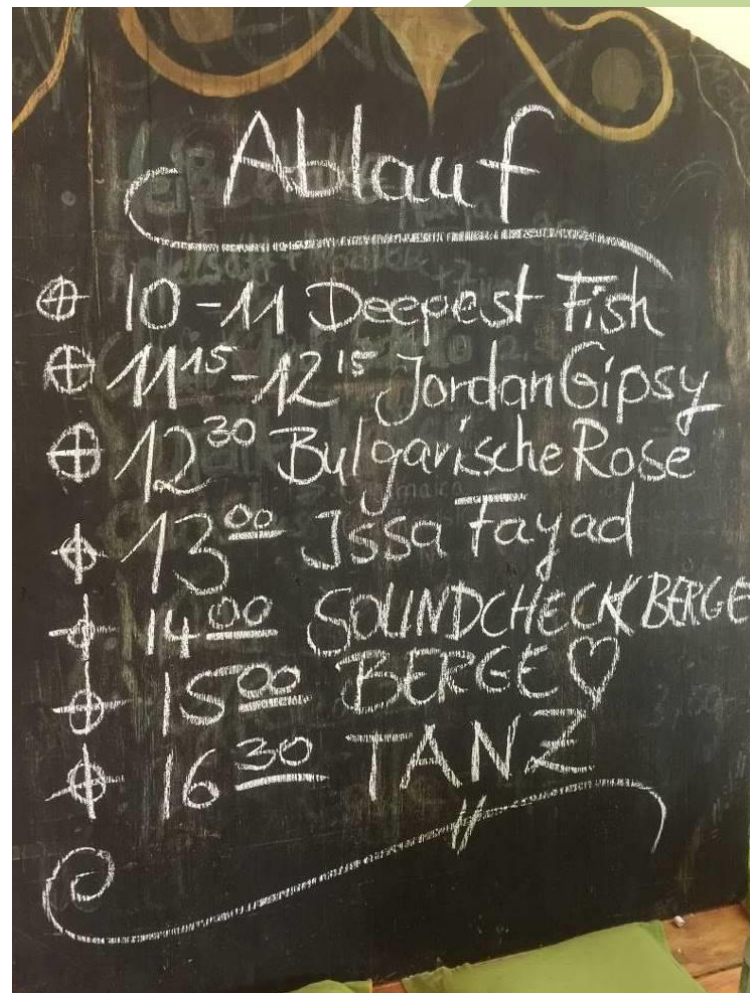 Ablauf
10-11 Deepest Fish
11 15 - 12 15 Jordan Gipsy
12 30 Bulgarische Rose
13 00 Issa Fayad
14 00 SOUNDCHECK BERGE
15 00 BERGE ♡
16 30 TANZ